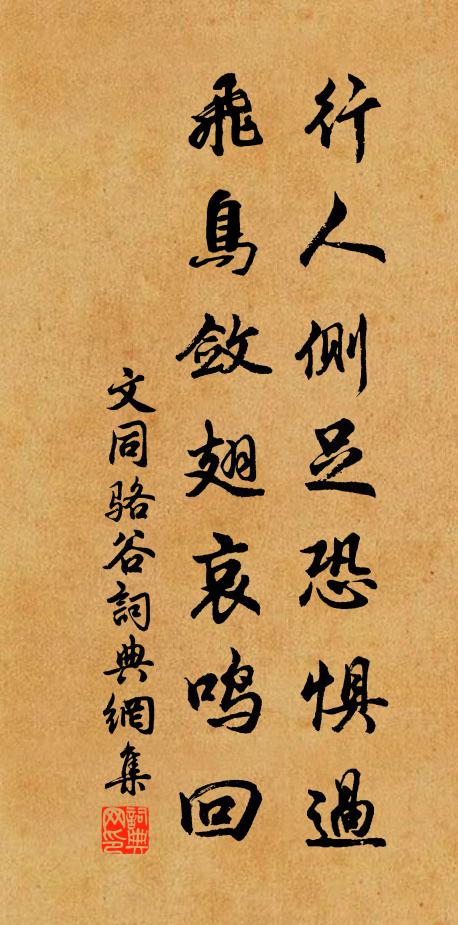 行人側足恐懼過
飛鳥斂翅哀鳴回
文同骆谷詞典網集
詞典网印